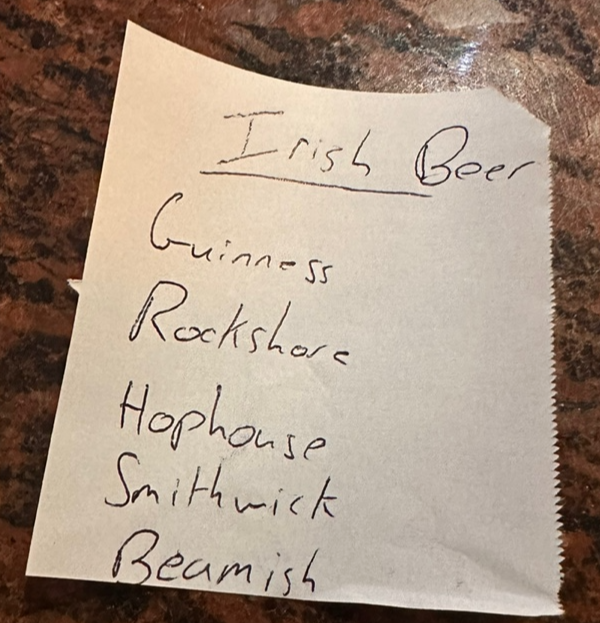 Irish Beer
Guinness
Rockshore
Hophouse
Smithwick
Beamish